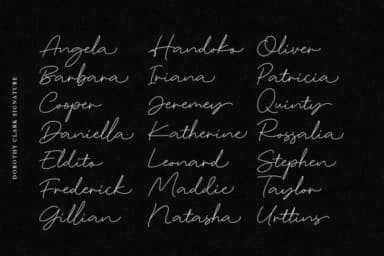 DOROTHY CLARK SIGNATURE
Angela Handoko Oliver
Barbara Iriana Patricia
Cooper Jeremey Quinty
Daniella Katherine Rossalia
Eldito Leonard Stephen
Frederick Maddie Taylor
Gillian Natasha Urttins